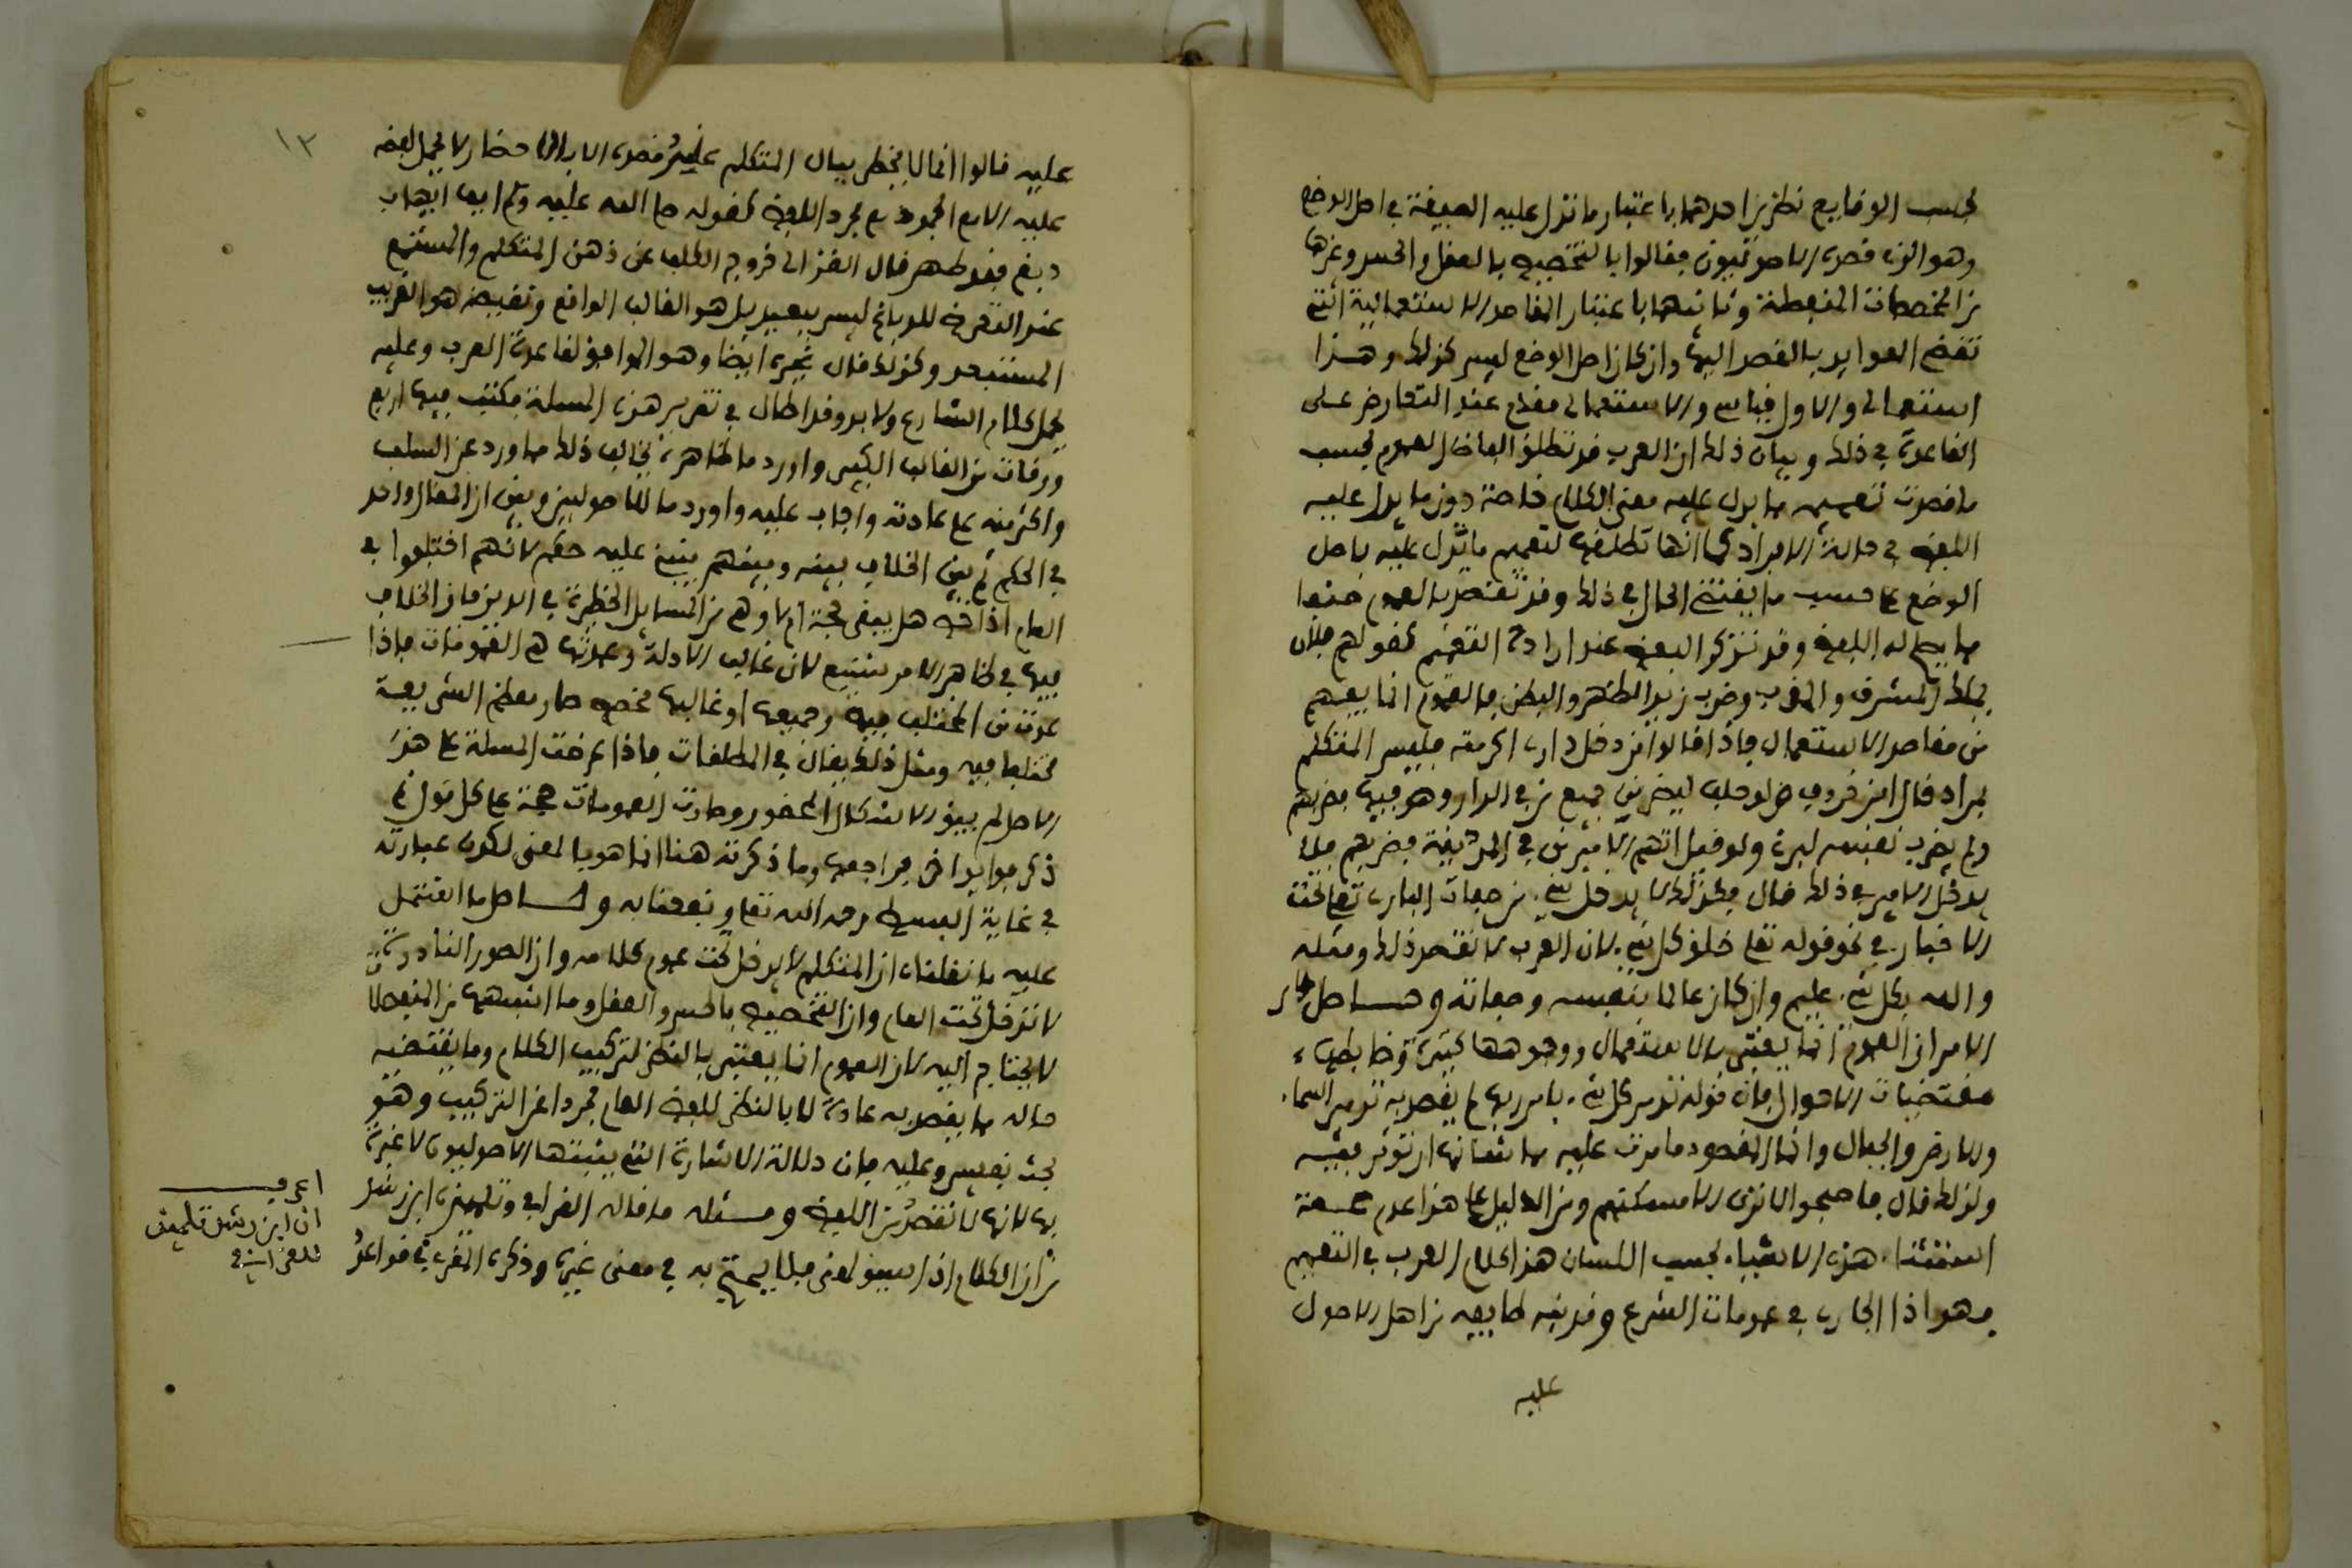 بحسب الوقايع نظرين احدهما باعتبار ما تدل عليه الصيغة في اصل الوضع
وهو الذي قصده الاصوليون فقالوا بالتخصيص بالعقل والحس وغيرها
من المخصصات المنفصلة وثانيهما باعتبار المقاصد الاستعمالية التي
تقضي العوايد بالقصد اليها وان كان اصل الوضع ليس كذلك وهذا
استعمالي والاول قياسي والاستعمالي مقدم عند التعارض على
القاعدة في ذلك وبيان ذلك ان العرب قد تطلق الفاظ العموم بحسب
ما قصدت تعميمه مما يدل عليه معنى الكلام خاصة دون ما يدل عليه
اللفظ في حالة الافراد كما انها تطلقها لتعميم ما تدل عليه باصل
الوضع على حسب ما يقتضي الحال في ذلك وقد تقصد بالعموم صنفا
مما يصلح له اللفظ وقد تذكر البعض عند ارادة التعميم كقولهم فلان
يملك المشرق والمغرب وضرب زيد الظهر والبطن فالعموم انما يفهم
من مقاصد الاستعمال فاذا قالوا من دخل داري اكرمته فليس المتكلم
بمراد قال ابن خروف ولو حلف ليضربن جميع من في الدار وهو فيها فضربهم
ولم يضرب نفسه لبر ولو فعل اتهم الامير من في المدينة فضربهم فلا
يدخل الامير في ذلك قال فكذلك لا يدخل شيء من صفات الباري تعلى تحت
الاخبار في نحو قوله تعلى خلق كل شيء لان العرب لا تقصد ذلك ومثله
والله بكل شيء عليم وان كان عالما بنفسه وصفاته وحاصل
الامر ان العموم انما يعتبر بالاستعمال ووجوهها كثيرة وضابطها
مقتضيات الاحوال فان قوله تدمر كل شيء بامر ربها لم يقصد به تدمير السماء
والارض والجبال وانما المقصود ما مرت عليه مما شانها ان تؤثر فيه
ولذلك قال فاصبحوا لا ترى الا مساكنهم ومن الدليل على هذا عدم صحة
استثناء هذه الاشياء بحسب اللسان هذا كلام العرب في التعميم
فهو اذا الجاري في عمومات الشرع وقد نبه طايفة من اهل الاصول
عليه
١٢
عليه فقالوا انما لا يخطر ببال المتكلم عند قصده الا بالاحضار لا يحمل لفظه
عليه الا مع الجمود مع مجرد اللفظ كقوله صلى الله عليه وسلم ايما اهاب
دبغ فقد طهر قال الغزالي خروج الكلب عن ذهن المتكلم والمستمع
عند التعرض للدباغ ليس ببعيد بل هو الغالب الواقع ونقيضه هو الغريب
المستبعد وكذلك قال غيره ايضا وهو الموافق لقاعدة العرب وعليه
يحمل كلام الشارع ولا بد وقد اطال في تقرير هذه المسلة فكتب فيها اربع
ورقات من القالب الكبير واورد ما ظاهره يخالف ذلك مما ورد عن السلف
واكثر منه على عادته واجاب عليه واورد ما للاصوليين وبين ان المقال واحد
في الحكم ثم بين الخلاف بينه وبينهم ينبني عليه حكم لانهم اختلفوا في
العام اذا خص هل يبقى حجة ام لا وهي من المسايل الخطيرة في الدين فان الخلاف
فيها في ظاهر الامر شنيع لان غالب الادلة وعمدتها هي العمومات فاذا
عدت من المختلف فيه وجميعها او غالبها مخصص صار معظم الشريعة
مختلفا فيه ومثل ذلك يقال في المطلقات فاذا عرضت المسلة على هذا
الاصل لم يبق الاشكال المحضور وصارت العمومات حجة على كل قول ثم
ذكر فوايد اخر فراجعه وما ذكرته هنا انما هو بالمعنى لكون عبارته
في غاية البسط رحمه الله تعلى ونفعنا به وحاصل ما اشتمل
عليه ما نقلناه ان المتكلم لا يدخل تحت عموم كلامه وان الصور النادرة
لا تدخل تحت العام وان التخصيص بالحس والعقل وما اشبههما من المنفصلا
لا يحتاج اليه لان العموم انما يعتبر بالنظر لتركيب الكلام وما يقتضيه
حاله مما يقصد به عادة لا بالنظر للفظ العام مجردا عن التركيب وهو
بحث نفيس وعليه فان دلالة الاشارة التي يثبتها الاصوليون لا عبرة
بها لانها لا تقصد من اللفظ ومثله ما قاله القرافي وتلميذه ابن رشد
من ان الكلام اذا سيق لمعنى فلا يحتج به في معنى غيره وذكره المقري في قواعد
اعرف
ان ابن رشد تلميذ
للقرافي